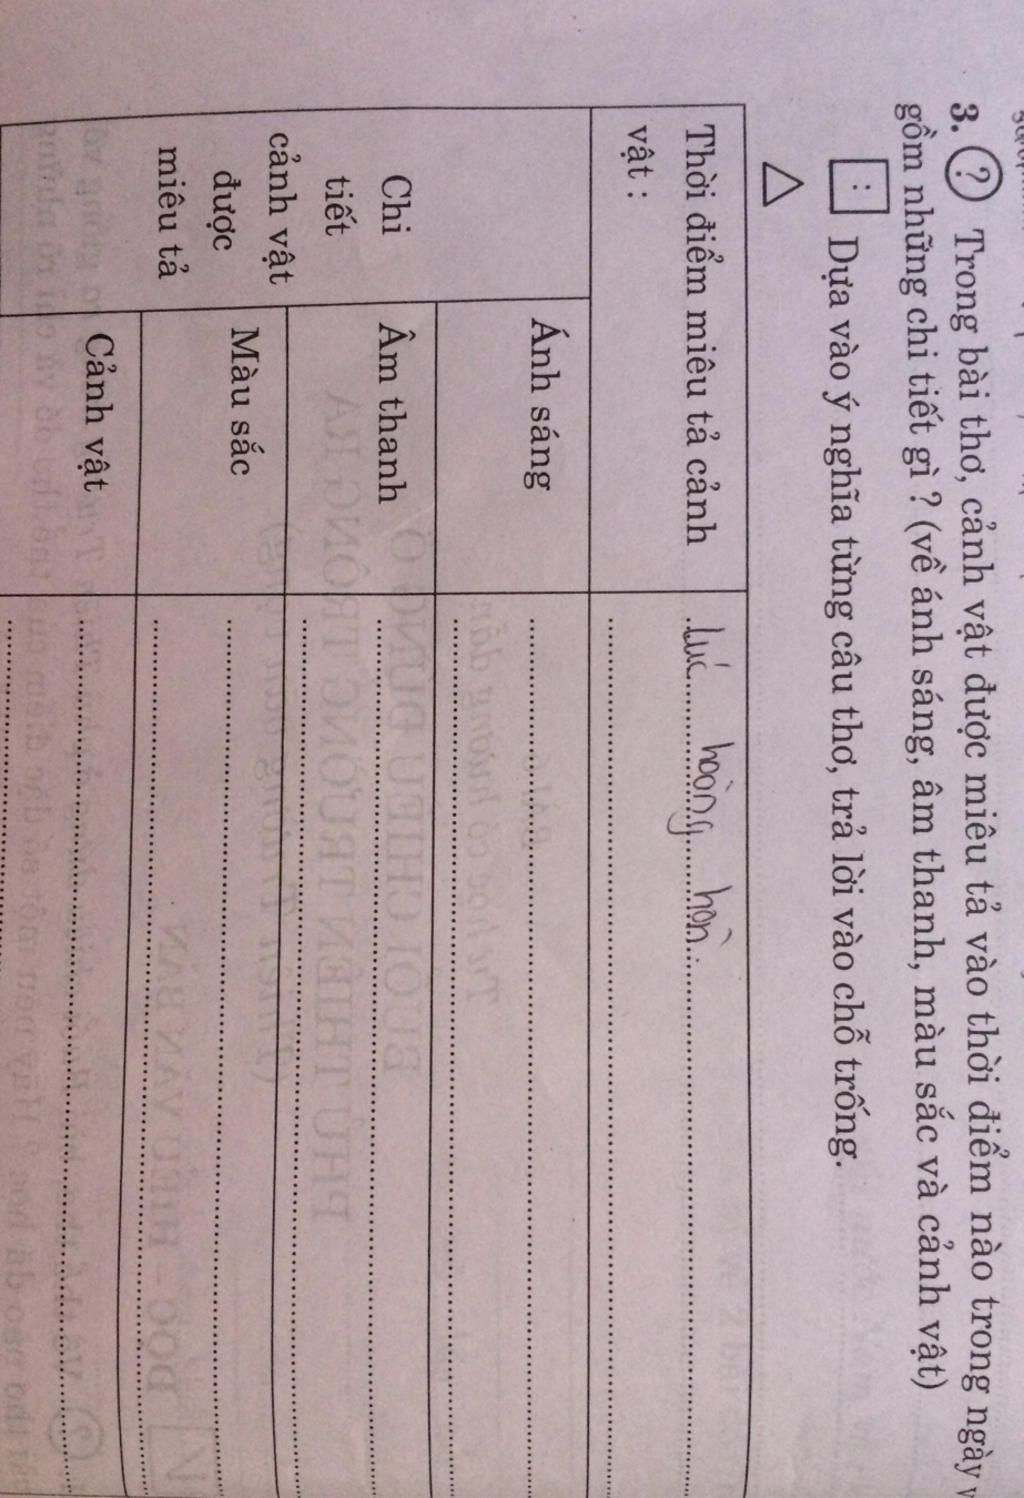 3. ? Trong bài thơ, cảnh vật được miêu tả vào thời điểm nào trong ngày
gồm những chi tiết gì ? (về ánh sáng, âm thanh, màu sắc và cảnh vật)
: Dựa vào ý nghĩa từng câu thơ, trả lời vào chỗ trống.
Thời điểm miêu tả cảnh
vật :
lúc hoàng hôn.
Chi
tiết
cảnh vật
được
miêu tả
Ánh sáng
Âm thanh
Màu sắc
Cảnh vật